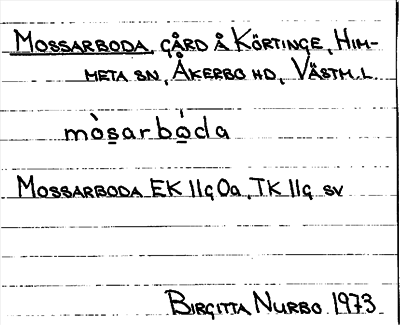 MOSSARBODA, GÅRD Å KÖRTINGE, HIM-
META SN, ÅKERBO HD, VÄSTM.L.
mòs̲arbó̲da
MOSSARBODA EK 11g 0a, TK 11g SV
BIRGITTA NURBO 1973